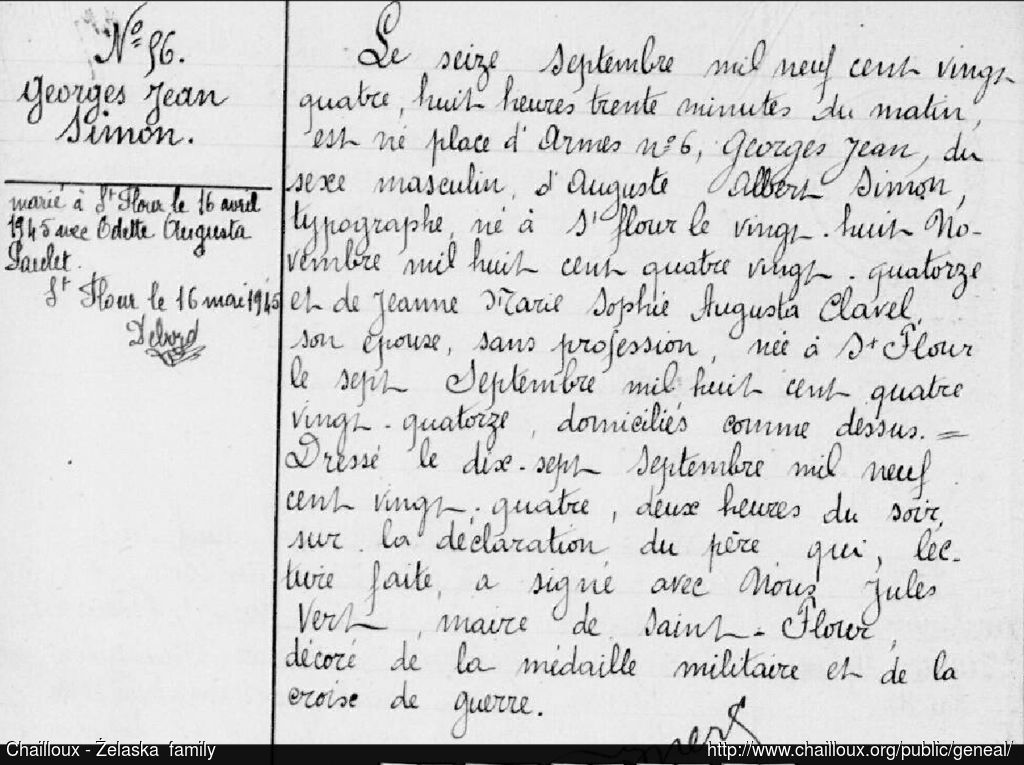 N° 56.
Georges Jean
Simon.
marié à St Flour le 16 avril
1945 avec Odette Augusta
Paulet.
St Flour le 16 mai 1945
Debord
Le seize Septembre mil neuf cent vingt
quatre, huit heures trente minutes du matin,
est né place d'Armes n° 6, Georges Jean, du
sexe masculin, d'Auguste Albert Simon,
typographe, né à St flour le vingt-huit No-
vembre mil huit cent quatre vingt-quatorze
et de Jeanne Marie Sophie Augusta Clavel,
son épouse, sans profession, née à St Flour
le sept Septembre mil huit cent quatre
vingt-quatorze, domiciliés comme dessus. =
Dressé le dix-sept Septembre mil neuf
cent vingt-quatre, deux heures du soir,
sur la déclaration du père qui, lec-
ture faite, a signé avec Nous Jules
Vert, maire de Saint-Flour,
décoré de la médaille militaire et de la
croix de guerre.
Chailloux - Żelaska family
http://www.chailloux.org/public/geneal/